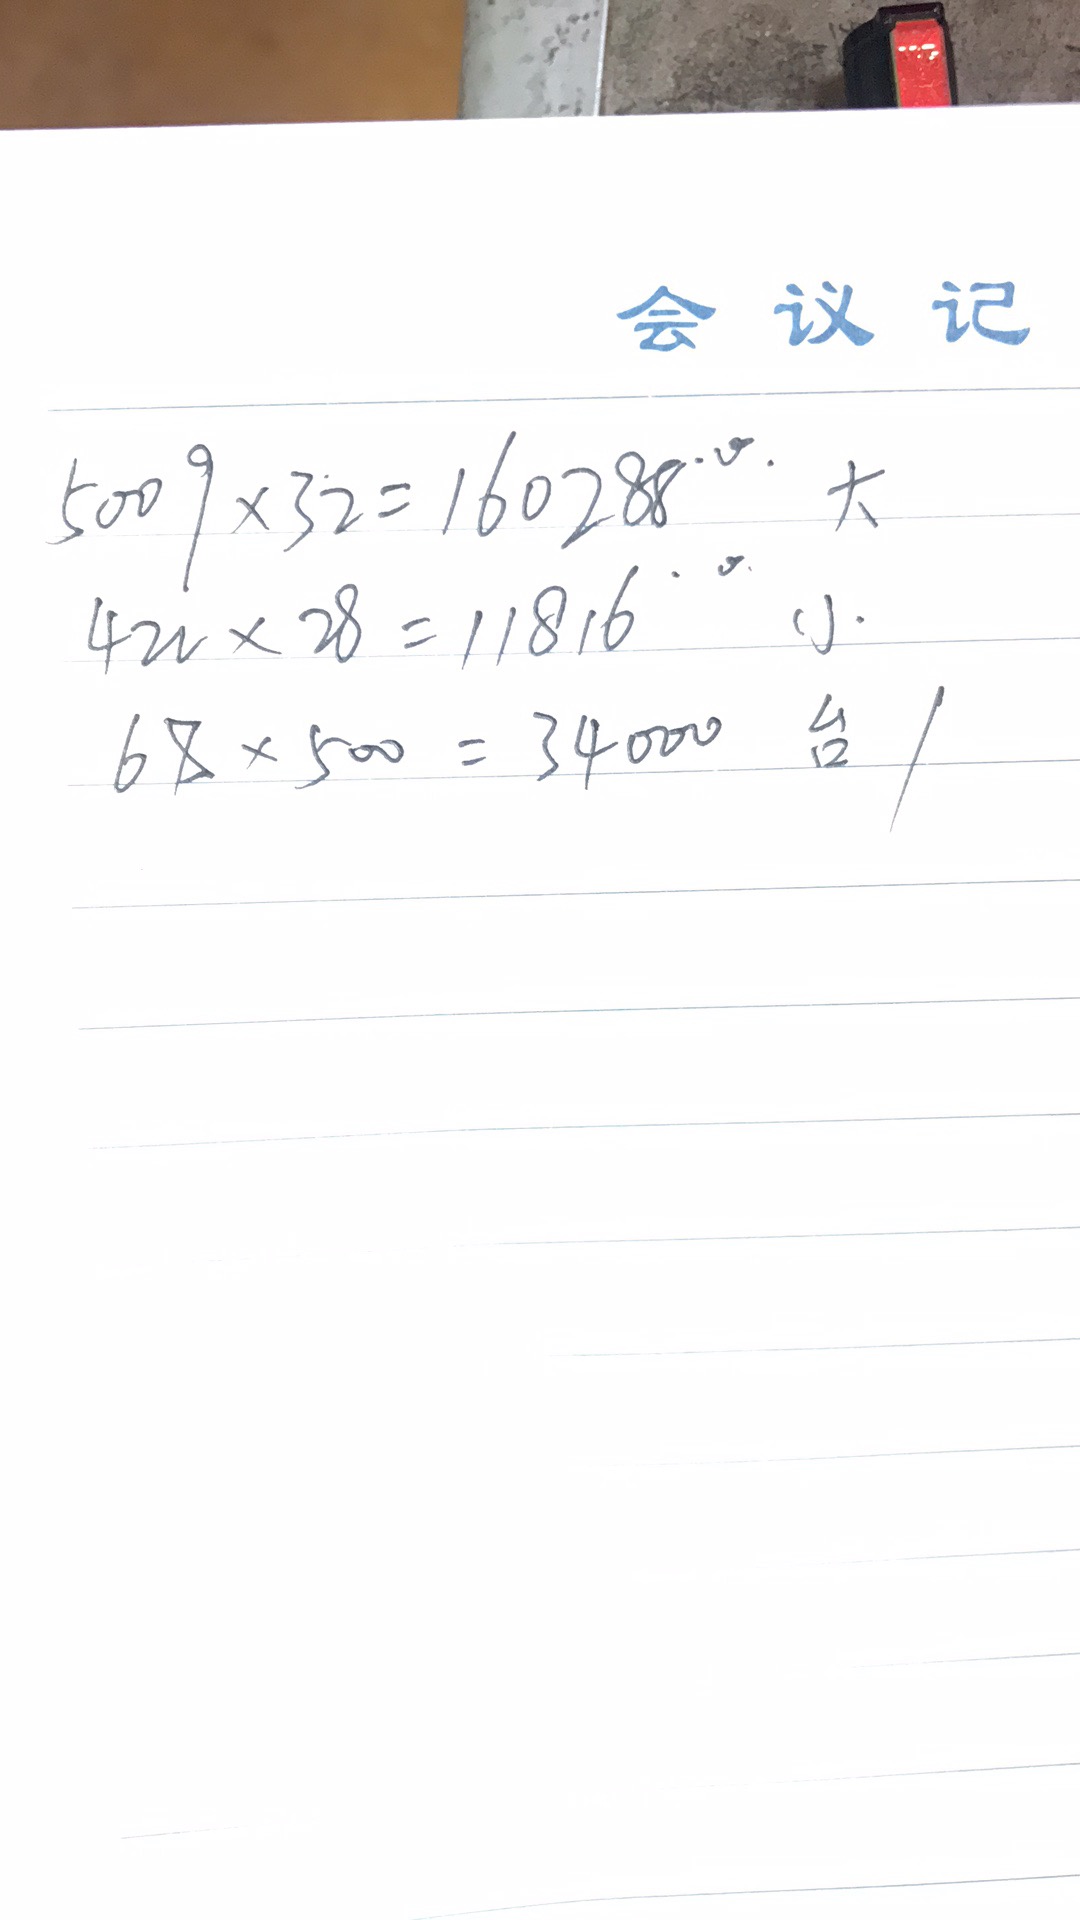 会议记
5009×32=160288.00. 大
422×28=11816.00. 小.
68×500=34000 台/